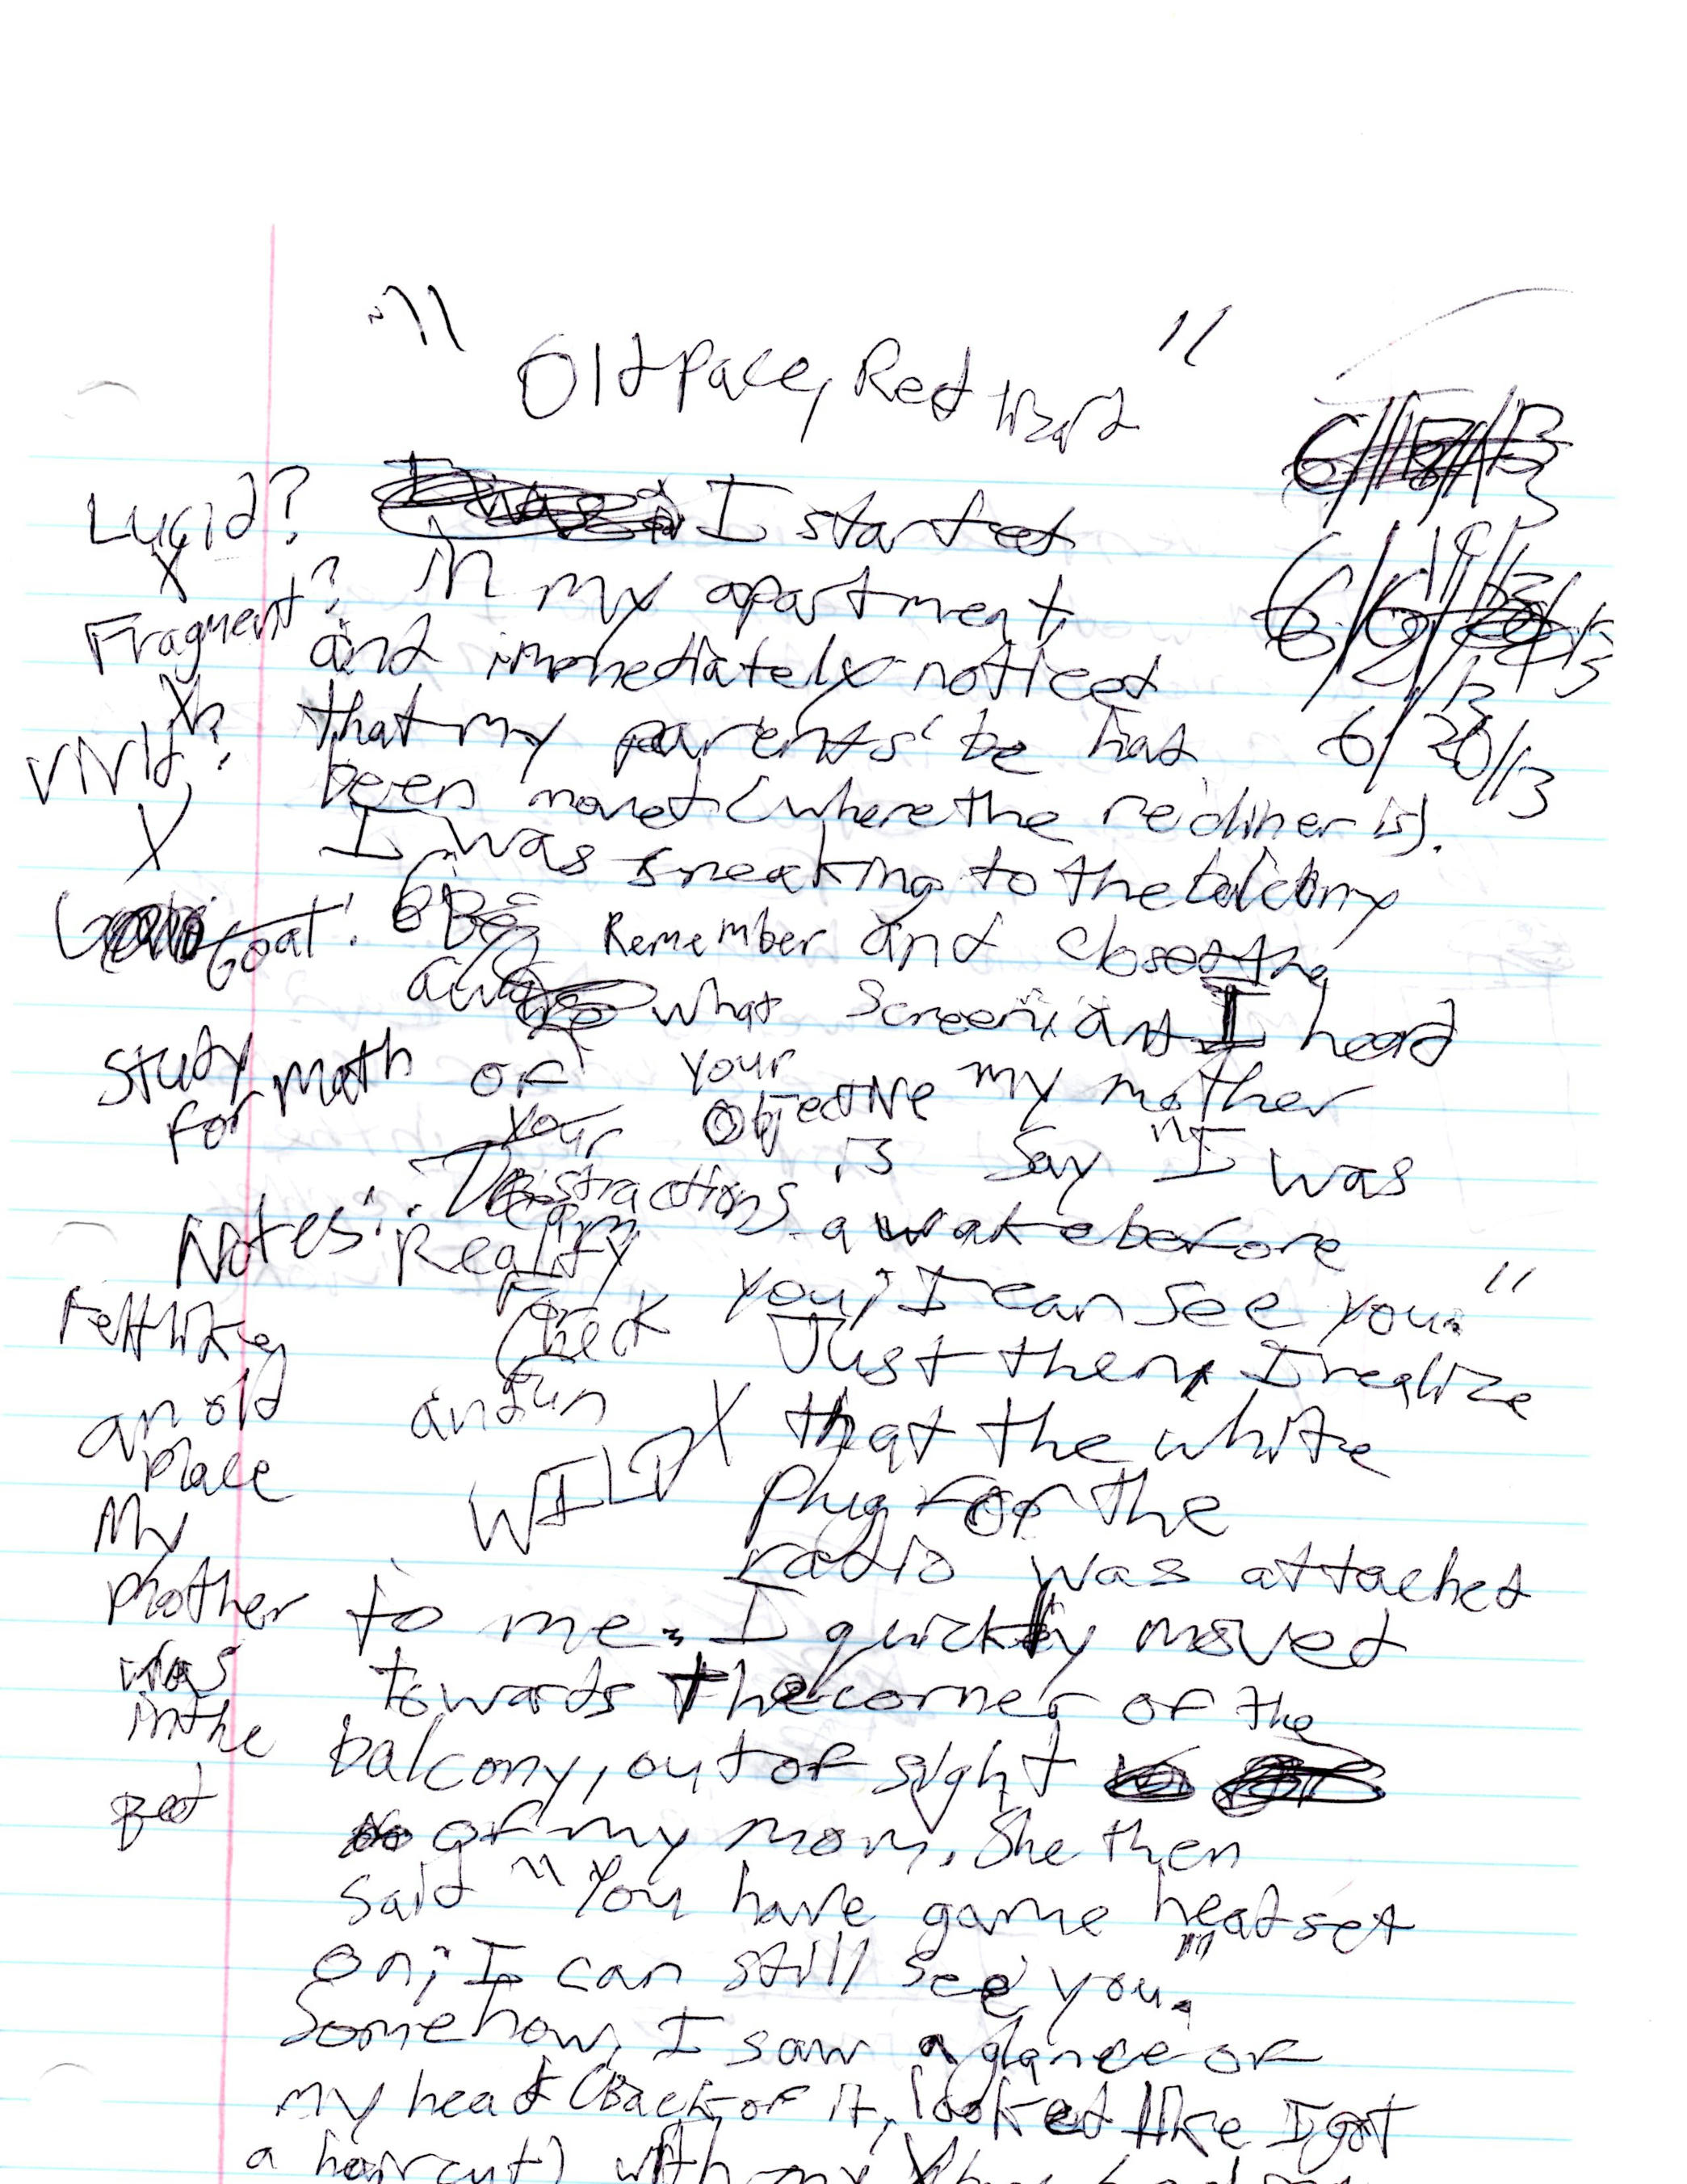 " Old Pace, Red Lizard "
6/20/13
Lucid?
X
Fragment?
X
Vivid?
X
Goal: Be
aware
of
your
Distractions
Study
for math
Remember
what
your
Objective
is
Notes:
Reality
Check
and
WILD X
Felt like
an old
place
My
mother
was
in the
bed
I started
in my apartment
and immediately noticed
that my parents' be had
been moved (where the recliner is).
I was sneaking to the balcony
and closed the
screen, and I heard
my mother
say "I was
awake before
you; I can see you."
Just then, I realize
that the white
plug for the
radio was attached
to me. I quickly moved
towards the corner of the
balcony, out of sight
of my mom. She then
said "You have game headset
on; I can still see you."
Somehow, I saw a glance of
my head (back of it, looked like I got
a haircut) with my